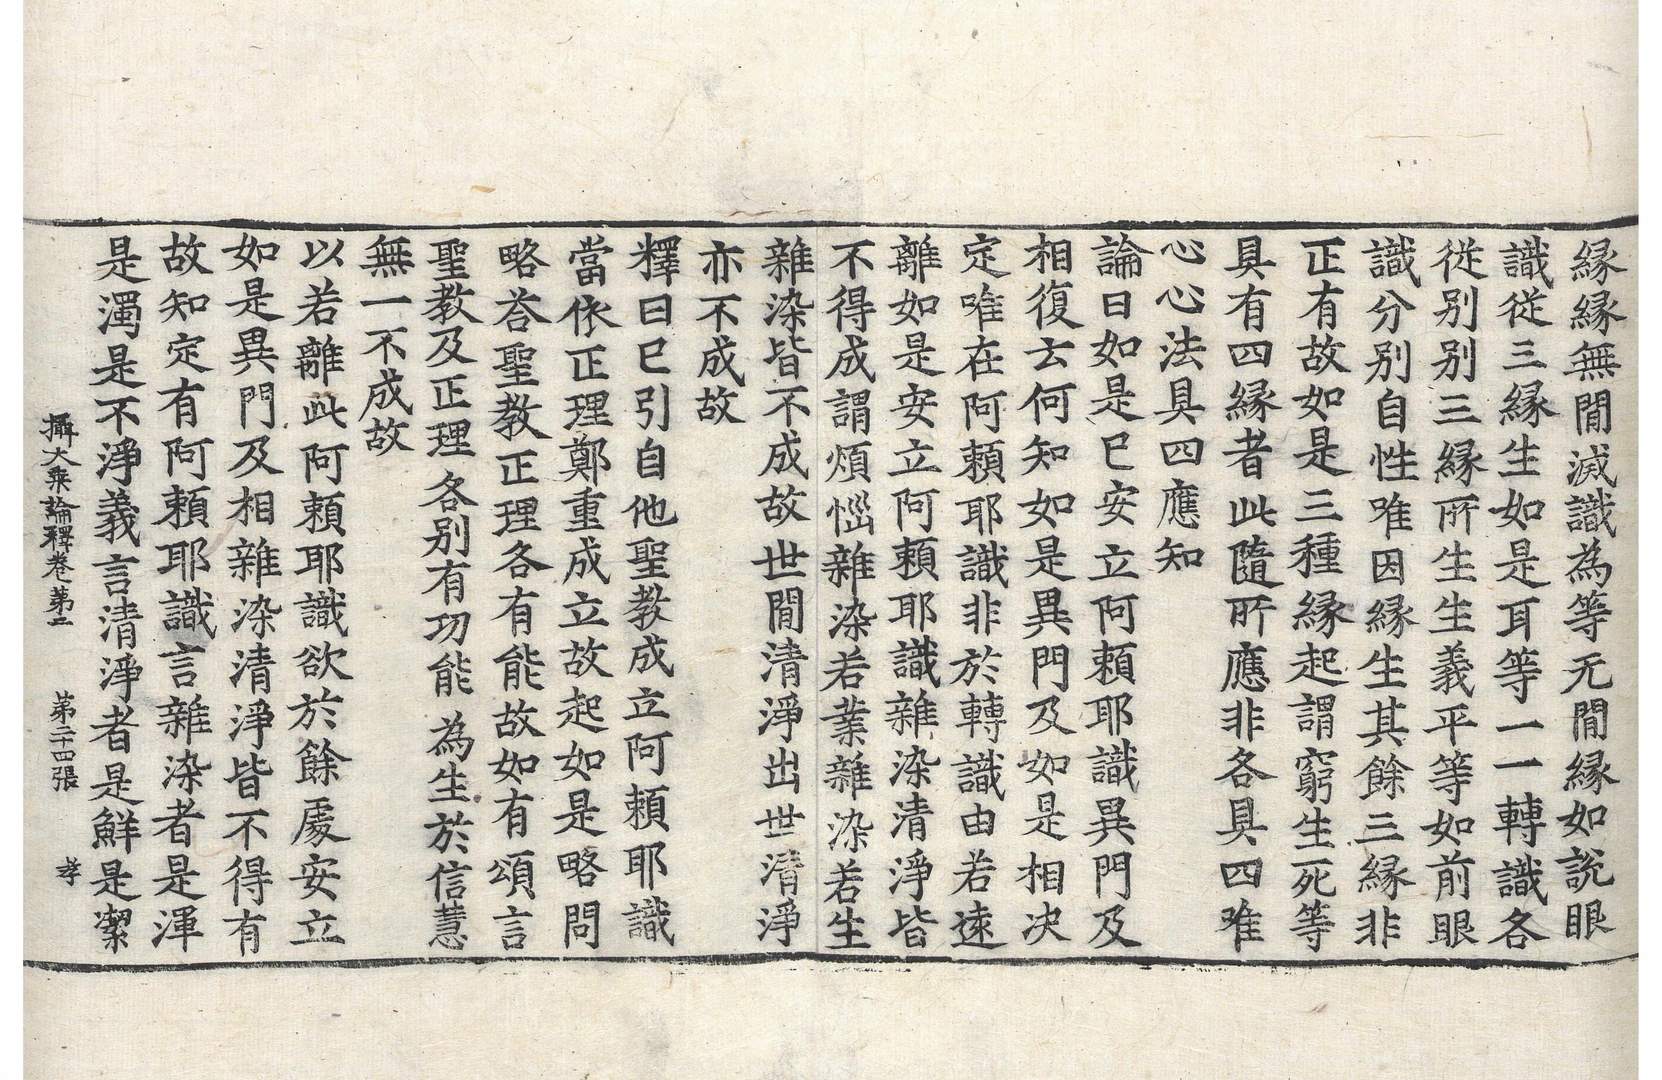 縁縁無閒滅識為等无閒縁如說眼
識從三縁生如是耳等一一轉識各
從別別三縁所生生義平等如前眼
識分別自性唯因縁生其餘三縁非
正有故如是三種縁起謂窮生死等
具有四縁者此隨所應非各具四唯
心心法具四應知
論曰如是已安立阿頼耶識異門及
相復云何知如是異門及如是相决
定唯在阿頼耶識非於轉識由若遠
離如是安立阿頼耶識雜染清淨皆
不得成謂煩惱雜染若業雜染若生
雜染皆不成故世閒清淨出世清淨
亦不成故
釋曰已引自他聖教成立阿頼耶識
當依正理鄭重成立故起如是略問
略荅聖教正理各有能故如有頌言
聖教及正理 各別有功能 為生於信慧
無一不成故
以若離此阿頼耶識欲於餘處安立
如是異門及相雜染清淨皆不得有
故知定有阿頼耶識言雜染者是渾
是濁是不淨義言清淨者是鮮是潔
攝大乘論釋卷第二 第二十四張 孝